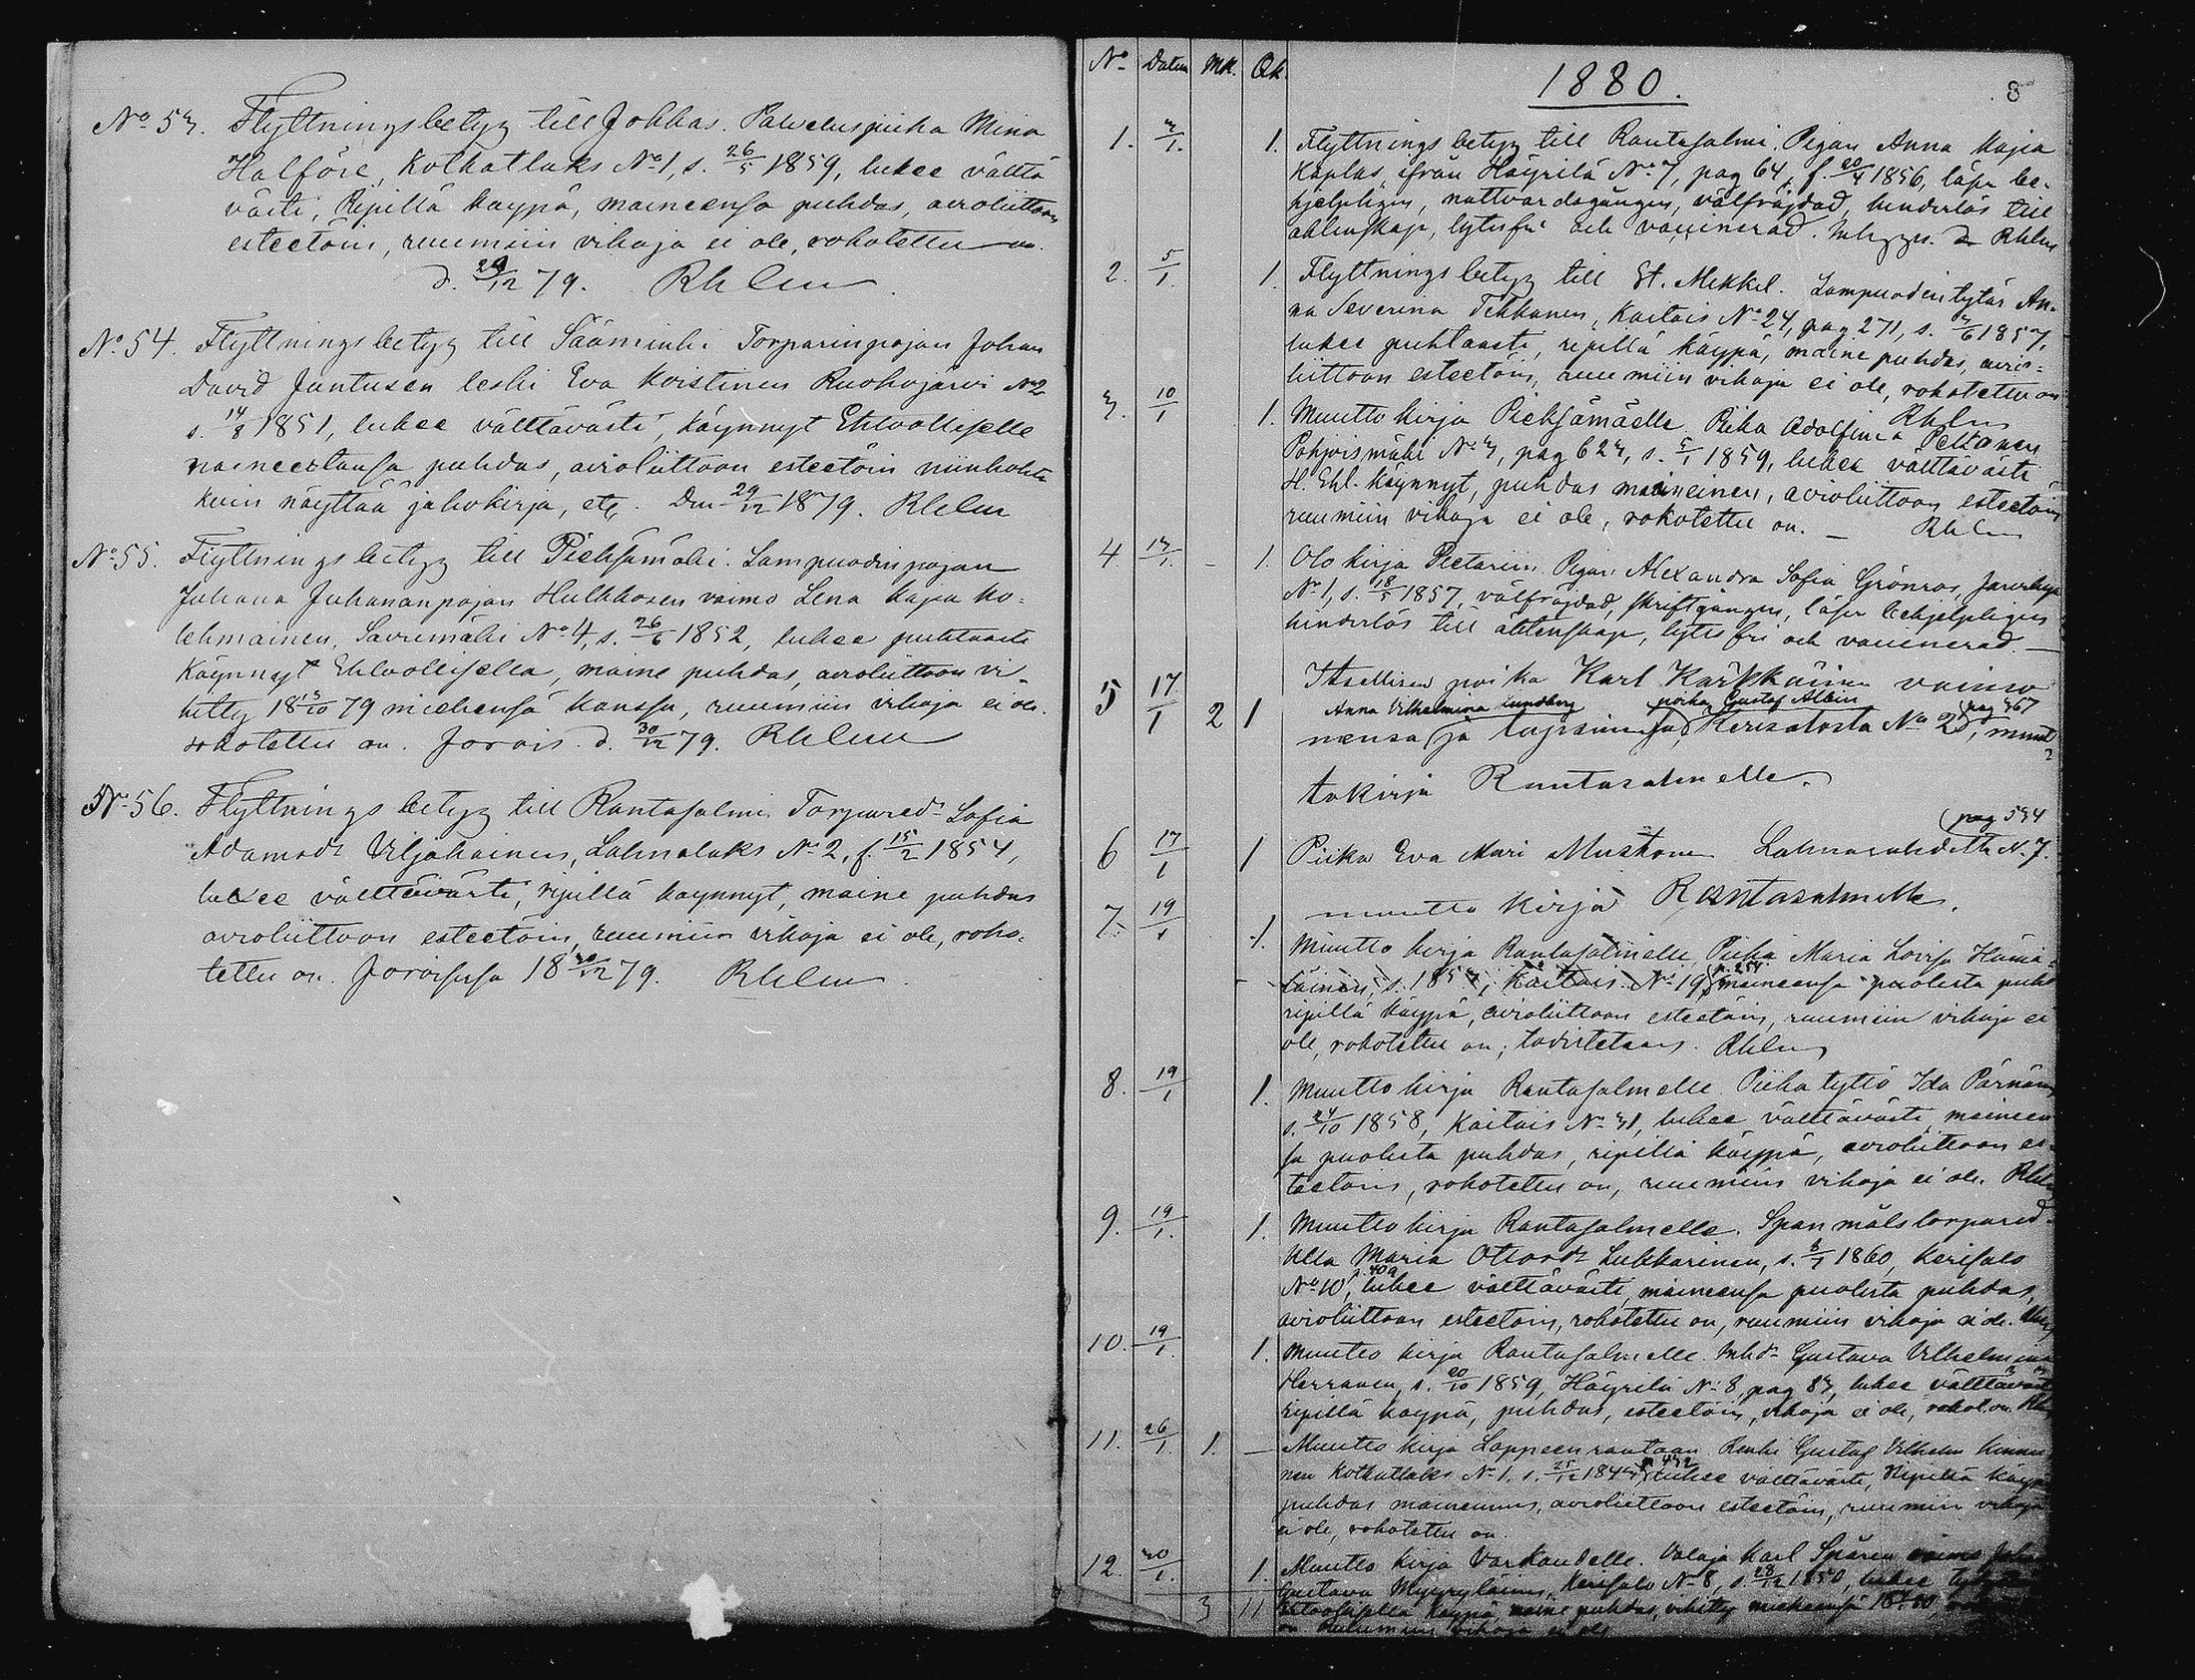 No 53. Flyttningsbetyg till Jokkas. Palveluspiika Mina
Halföre, Kotkatlaks No 1, s. 26/5 1859, lukee vältta
västi, Ripillä käypä, maineensa puhdas, avioliittoon
esteetöin, ruumiin vikoja ei ole, rokotettu on.
d. 29/12 79. Rhlen
No 54. Flyttningsbetyg till Sääminki Torparinpojan Johan
David Juntusen leski Eva Koistinen Ruokojärvi No 2
s. 14/8 1851, lukee välttävästi, käynnyt Ehtoolliselle
maineeltansa puhdas, avioliittoon esteetöin niinkohta
kuin näyttää jakokirja, etc. Den 29/12 1879. Rhlen
No 55. Flyttningsbetyg till Pieksämäki. Lampuodinpojan
Juhana Juhananpojan Hulkkosen vaimo Lena Kajsa Ko-
lehmainen, Savumäki No 4, s. 26/6 1852, lukee puhtaasti
Käynnyt Ehtoollisella, maine puhdas, avioliittoon vi-
hitty 18 13/10 79 miehensä kanssa, ruumiin vikoja ei ole.
rokotettu on. Jorois d. 30/12 79. Rhlen
No 56. Flyttningsbetyg till Rantasalmi. Torpared. Sofia
Adamsdr Viljakainen, Lahnalaks No 2, f. 15/2 1854,
lukee välttävästi, ripillä käynnyt, maine puhdas
avioliittoon esteetöin, ruumiin vikoja ei ole, roko-
tettu on. Joroisissa 18 30/12 79. Rhlen
No Datum Mk. Qk.
1880.
8
1. 3/1. 1. Flyttningsbetyg till Rantasalmi. Pigan Anna Kajsa
Kaplas, ifrån Häyrilä No 7, pag 64, f. 20/4 1856, läser be-
hjelpligen, nattvardsgången, välfräjdad, hinderlös till
äktenskap, lytesfri och vaccinerad. Rhlen
2. 5/1. 1. Flyttningsbetyg till St. Mikkel. Lampuodin tytär An-
na Severina Tikkanen, Kaitais No 24, pag 271, s. 1857,
lukee puhtaasti, ripillä käypä, maine puhdas, avio-
liittoon esteetöin, ruumiin vikoja ei ole, rokotettu on
Rhlen
3. 10/1 1. Muuttokirja Pieksämäelle. Piika Adolfina Peltonen
Pohjoismäki No 3, pag 623, s. 5/1 1859, lukee välttävästi
H. Eht. Käynnyt, puhdas maineinen, avioliittoon esteetöin
ruumiin vikoja ei ole, rokotettu on. — Rhlen
4. 13/1. - 1. Olokirja Pietariin. Pigan Alexandra Sofia Grönros, Järvikylä
No 1, s. 18/5 1857, välfräjdad, skriftgången, läser behjelpligen
hinderlös till äktenskap, lytesfri och vaccinerad. —
5 17/1 2 1 Itsellisen poika Karl Karkkäinen vaimo
Anna Vilhelmina Lundberg poika Gustaf Albin pag 367
nensa (ja lapsinensa) Kerisalosta No 2, muut
tokirja Rantasalmelle.
(pag 534
6 17/1 1 Piika Eva Mari Mustonen Lahnasahdetta N. 7.
muutto kirja Rantasalmelle.
7. 19/1 1. Muutto kirja Rantasalmelle. Piika Maria Lovisa Hämä-
läinen, s. 1853, Kaitais. No 19, p. 254. maineensa puolesta puhd
ripillä käypä, avioliittoon esteetöin, ruumiin vikoja ei
ole, rokotettu on; todistetaan. Rhlen
8. 19/1 1. Muutto kirja Rantasalmelle. Piikatyttö Ida Pärnänen
s. 24/10 1858, Kaitais No 31, lukee välttävästi, maineen
sa puolesta puhdas, ripillä käyppä, avioliittoon es-
teetöin, rokotettu on, ruumiin vikoja ei ole. Rhlen
9. 19/1. 1. Muutto kirja Rantasalmelle. Spanmålstorpared.
Ulla Maria Ottosdr Lukkarinen, s. 1860, Kerisalo
No 10, p. 409 lukee välttävästi, maineensa puolesta puhdas,
avioliittoon esteetöin, rokotettu on, ruumiin vikoja ei ole. Rhlen
10. 19/1. 1. Muutto kirja Rantasalmelle. Inhdr Gustava Vilhelmina
Herranen, s. 20/10 1859, Häyrilä No 8, pag 83, lukee välttäväst
ripillä käypä, puhdas, esteetöin, vikoja ei ole, rokot. on. Rhlen
11. 26/1. 1. — Muutto kirja Lappeenrantaan. Renki Gustaf Vilhelm Kinnu
nen Kotkatlaks No 1. s. 25/12 1843, p 432 lukee välttävästi, Ripillä käypä
puhdas maineinen, avioliittoon esteetöin, ruumiin vikoja
ei ole, rokotettu on.
12. 30/1. 1. Muutto kirja Varkaudelle. Valaja Karl Spåren vaimo
Gustava Myyryläinen, Kerisalo No 8, s. 28/12 1850, lukee
3 11 Ehtoollisella käypä, maine puhdas, vihitty miehensä
on. Ruumiin vikoja ei ole